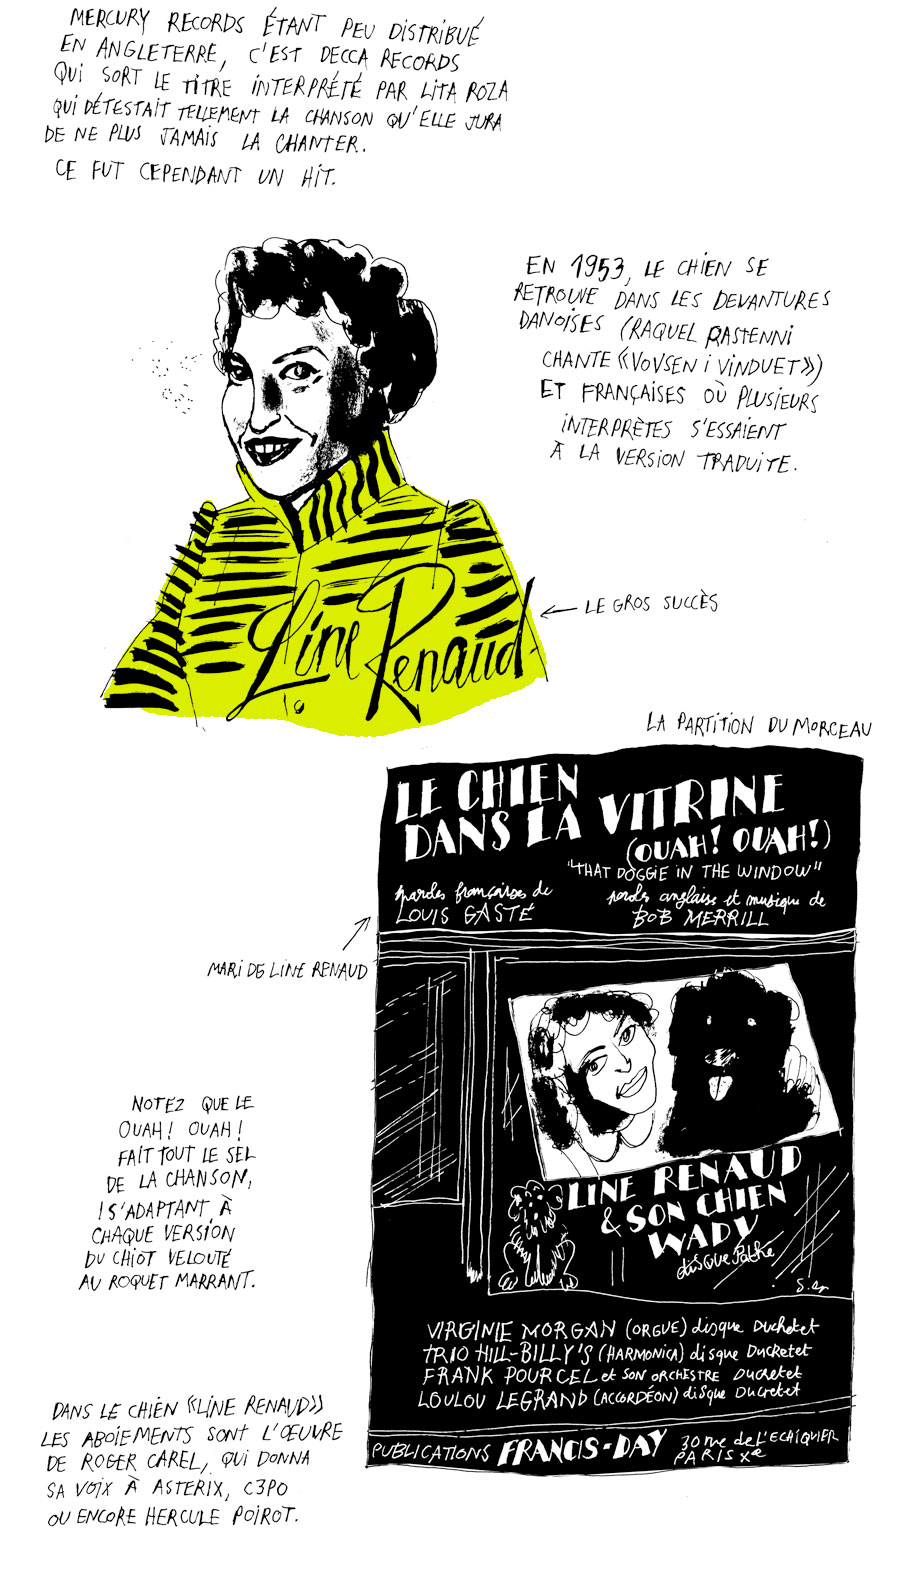 MERCURY RECORDS ÉTANT PEU DISTRIBUÉ
EN ANGLETERRE, C'EST DECCA RECORDS
QUI SORT LE TITRE INTERPRÉTÉ PAR LITA ROZA
QUI DÉTESTAIT TELLEMENT LA CHANSON QU'ELLE JURA
DE NE PLUS JAMAIS LA CHANTER.
CE FUT CEPENDANT UN HIT.
EN 1953, LE CHIEN SE
RETROUVE DANS LES DEVANTURES
DANOISES (RAQUEL RASTENNI
CHANTE «VOVSEN I VINDUET»)
ET FRANÇAISES OÙ PLUSIEURS
INTERPRÈTES S'ESSAIENT
À LA VERSION TRADUITE.
Line Renaud
LE GROS SUCCÈS
LA PARTITION DU MORCEAU
LE CHIEN
DANS LA VITRINE
(OUAH! OUAH!)
"THAT DOGGIE IN THE WINDOW"
paroles françaises de
LOUIS GASTÉ
paroles anglaises et musique de
BOB MERRILL
MARI DE LINE RENAUD
LINE RENAUD
& SON CHIEN
WADY
disque Pathe
NOTEZ QUE LE
OUAH! OUAH!
FAIT TOUT LE SEL
DE LA CHANSON,
S'ADAPTANT À
CHAQUE VERSION
DU CHIOT VELOUTÉ
AU ROQUET MARRANT.
VIRGINIE MORGAN (ORGUE) disque Ducretet
TRIO HILL-BILLY'S (HARMONICA) disque Ducretet
FRANK POURCEL et SON ORCHESTRE Ducretet
LOULOU LEGRAND (ACCORDÉON) disque Ducretet
PUBLICATIONS FRANCIS-DAY 30 rue de L'ECHIQUIER
PARIS Xe
DANS LE CHIEN «LINE RENAUD»
LES ABOIEMENTS SONT L'ŒUVRE
DE ROGER CAREL, QUI DONNA
SA VOIX À ASTERIX, C3PO
OU ENCORE HERCULE POIROT.